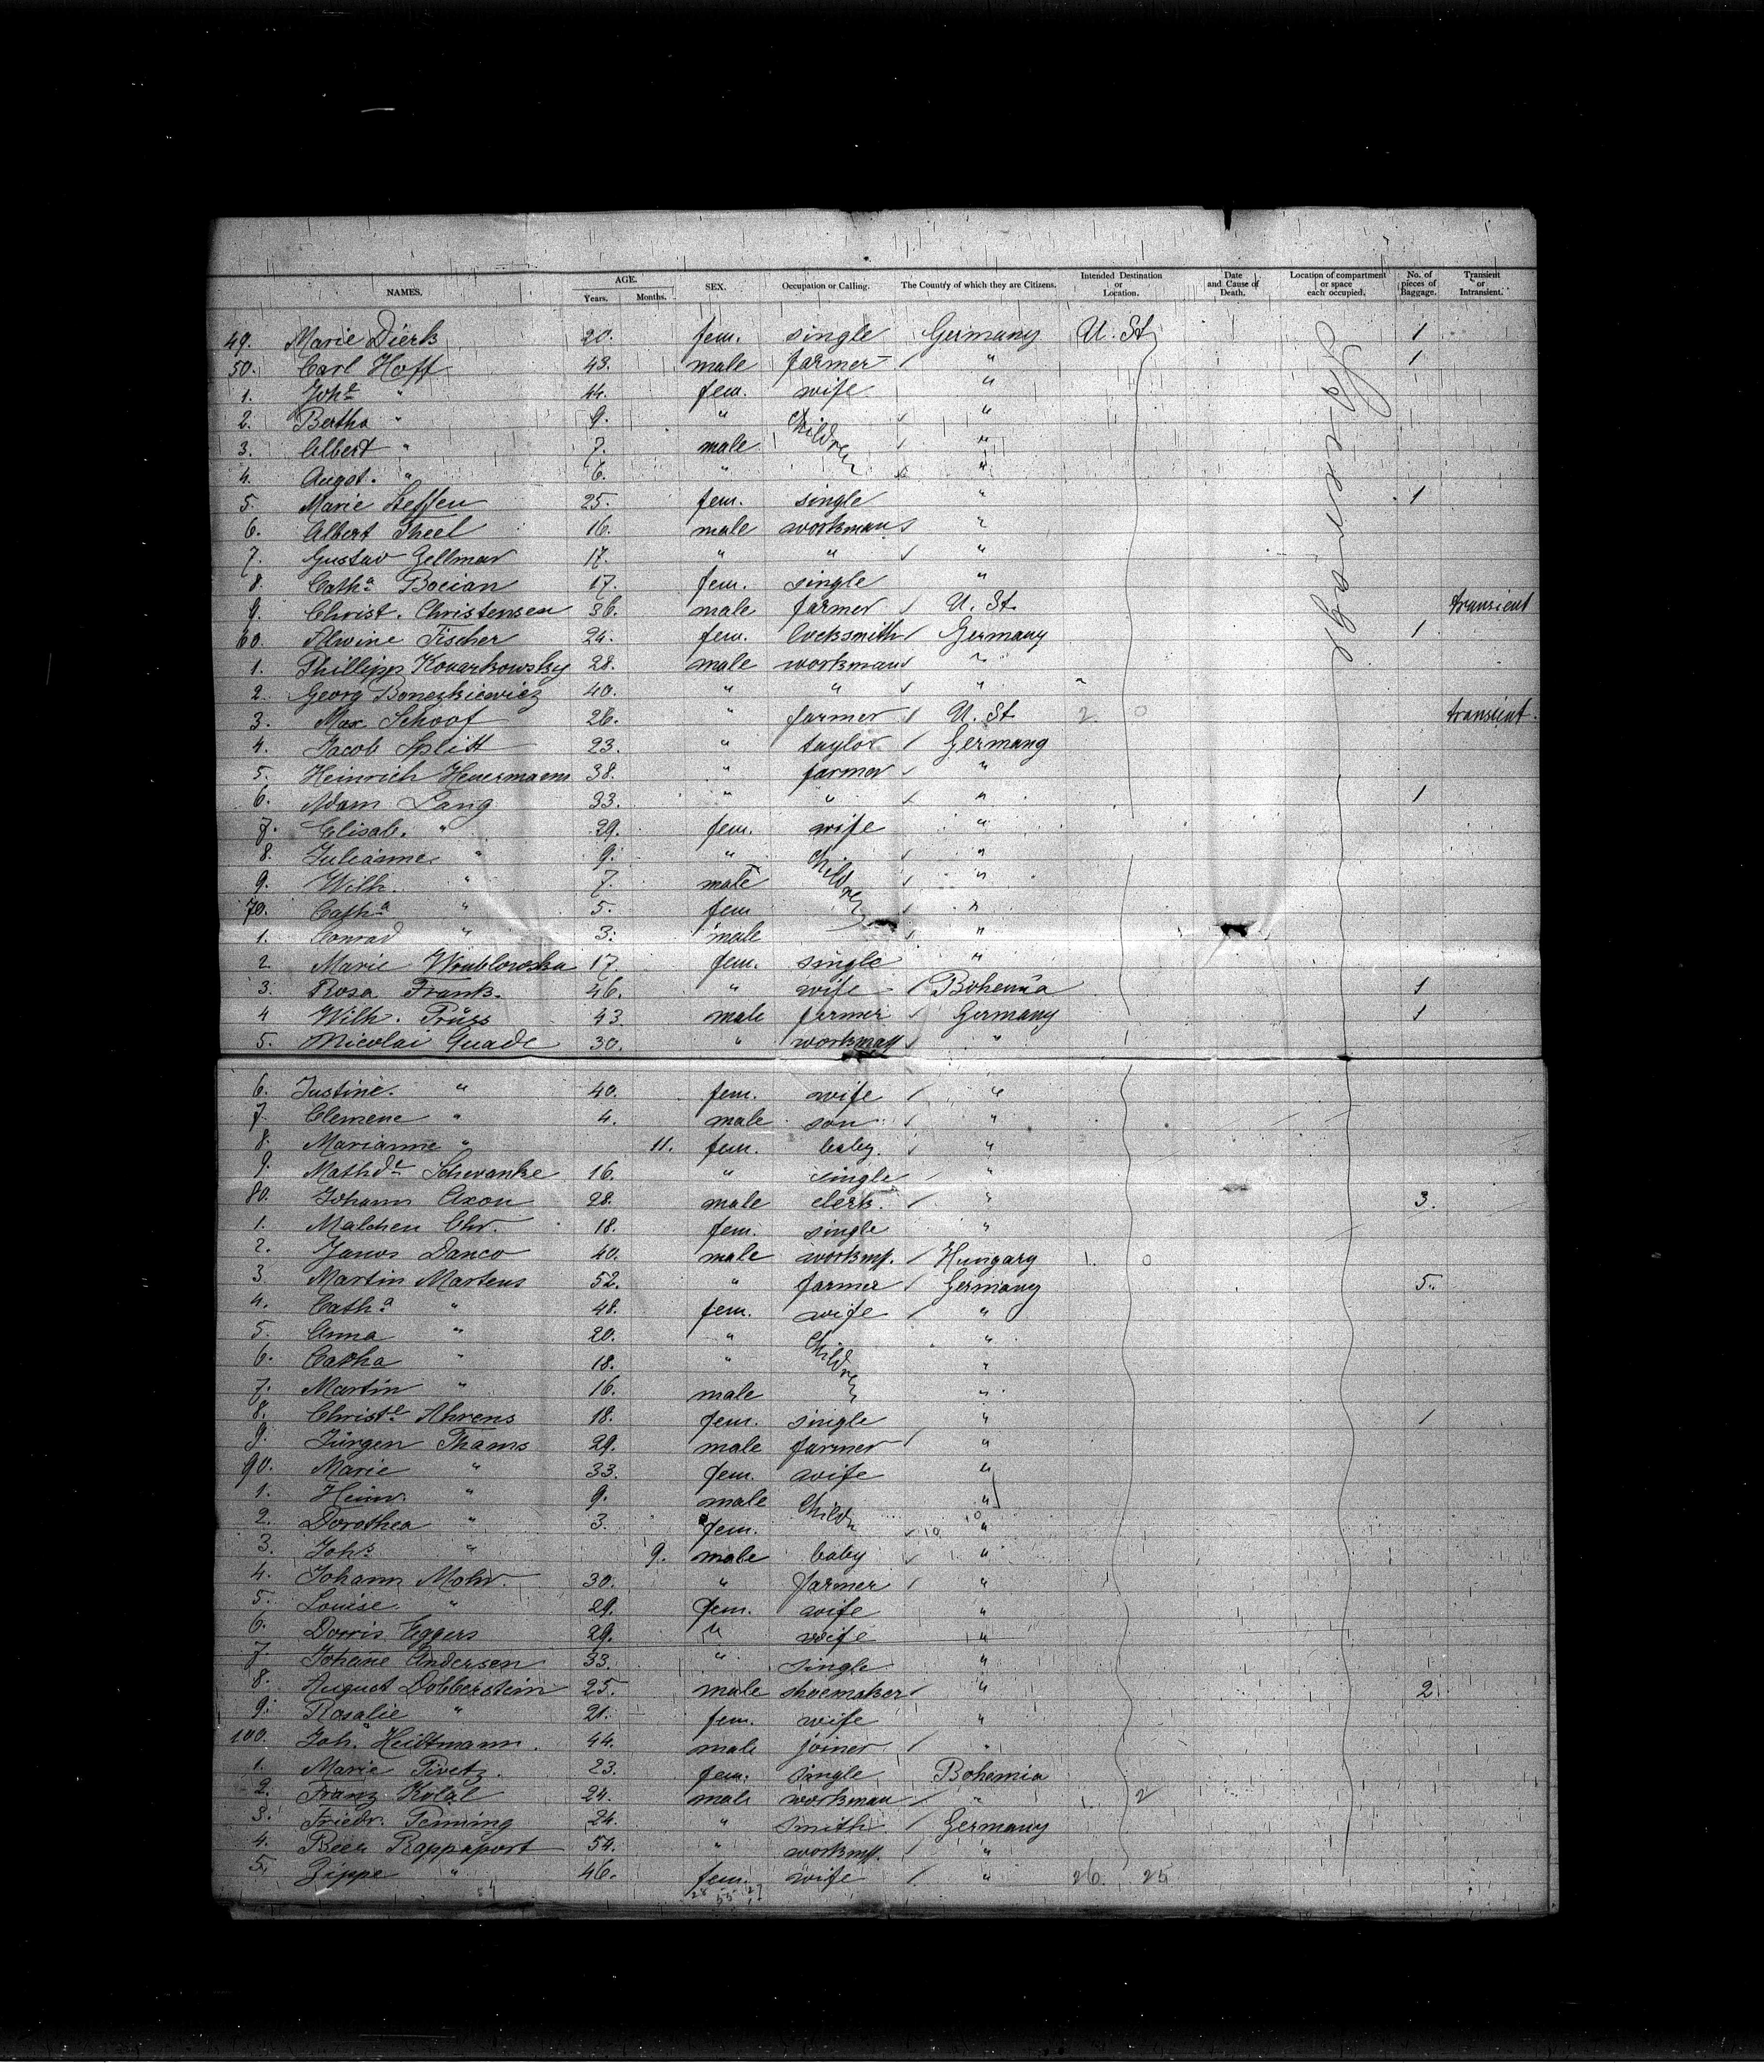 NAMES. AGE. Years. Months. SEX. Occupation or Calling. The Country of which they are Citizens. Intended Destination or Location. Date and Cause of Death. Location of compartment or space each occupied. No. of pieces of Baggage. Transient or Intransient.
49. Marie Dierk 20. fem. single Germany U. St. 1
50. Carl Hoff 43. male farmer " 1
1. Johe " 44. fem. wife "
2. Bertha " 9. " Children "
3. Albert " 7. male "
4. Augst. " 6. " "
5. Marie Steffen 25. fem. single " 1
6. Albert Theel 16. male workman "
7. Gustav Gellmar 17. " " "
8. Catha Bocian 17. fem. single "
9. Christ. Christensen 36. male farmer U. St. transient
60. Alwine Fischer 24. fem. locksmith Germany 1
1. Phillipp Kouarkowsky 28. male workman "
2. Georg Boneskiewicz 40. " " " "
3. Max Schoof 26. " farmer U. St 2. 0 transient.
4. Jacob Split 23. " taylor Germany
5. Heinrich Heuermann 38. " farmer "
6. Adam Lang 33. " " " 1
7. Elisab. " 29. fem. wife "
8. Julianne " 9. " Children "
9. Wilh. " 7. male "
70. Catha " 5. fem "
1. Conrad " 3. male "
2. Marie Wrublowska 17. fem. single "
3. Rosa Frank. 46. " wife Bohemia 1
4 Wilh. Prüss 43 male farmer Germany 1
5. Nicolai Guade 30. " workman "
6. Justine. " 40. fem. wife "
7. Clemene " 4. male son "
8. Marianne " 11. fem. baby. "
9. Mathde Schwanke 16. " single "
80. Johann Axon 28. male clerk. " 3.
1. Malchen Chr. 18. fem. single "
2. Janos Danco 40. male workm. Hungary 1. 0
3. Martin Martens 52. " farmer Germany 5.
4. Catha " 48. fem. wife "
5. Anna " 20. " Children "
6. Catha " 18. " "
7. Martin " 16. male "
8. Christe Ahrens 18. fem. single " 1
9. Jürgen Thams 29. male farmer "
90. Marie " 33. fem. wife "
1. Heinr. " 9. male Childn "
2. Dorothea " 3. fem. 10 10 "
3. Johs " 9. male baby "
4. Johann Mohr. 30. " farmer "
5. Louise. " 29. fem. wife "
6. Dorris Eggers 29. " wife "
7. Johane Andersen 33. " single "
8. August Dobberstein 25. male shoemaker " 2
9. Rosalie " 21. fem. wife "
100. Joh. Heidtmann. 44. male joiner "
1. Marie Pivetz. 23. fem. single Bohemia
2. Franz Kolal 24. male workman " 2
3. Friedr. Penning 24. " smith. Germany
4. Beer Rappaport 54. " workm. "
5. Zippe " 46. fem. wife " 26. 25
28 55 27